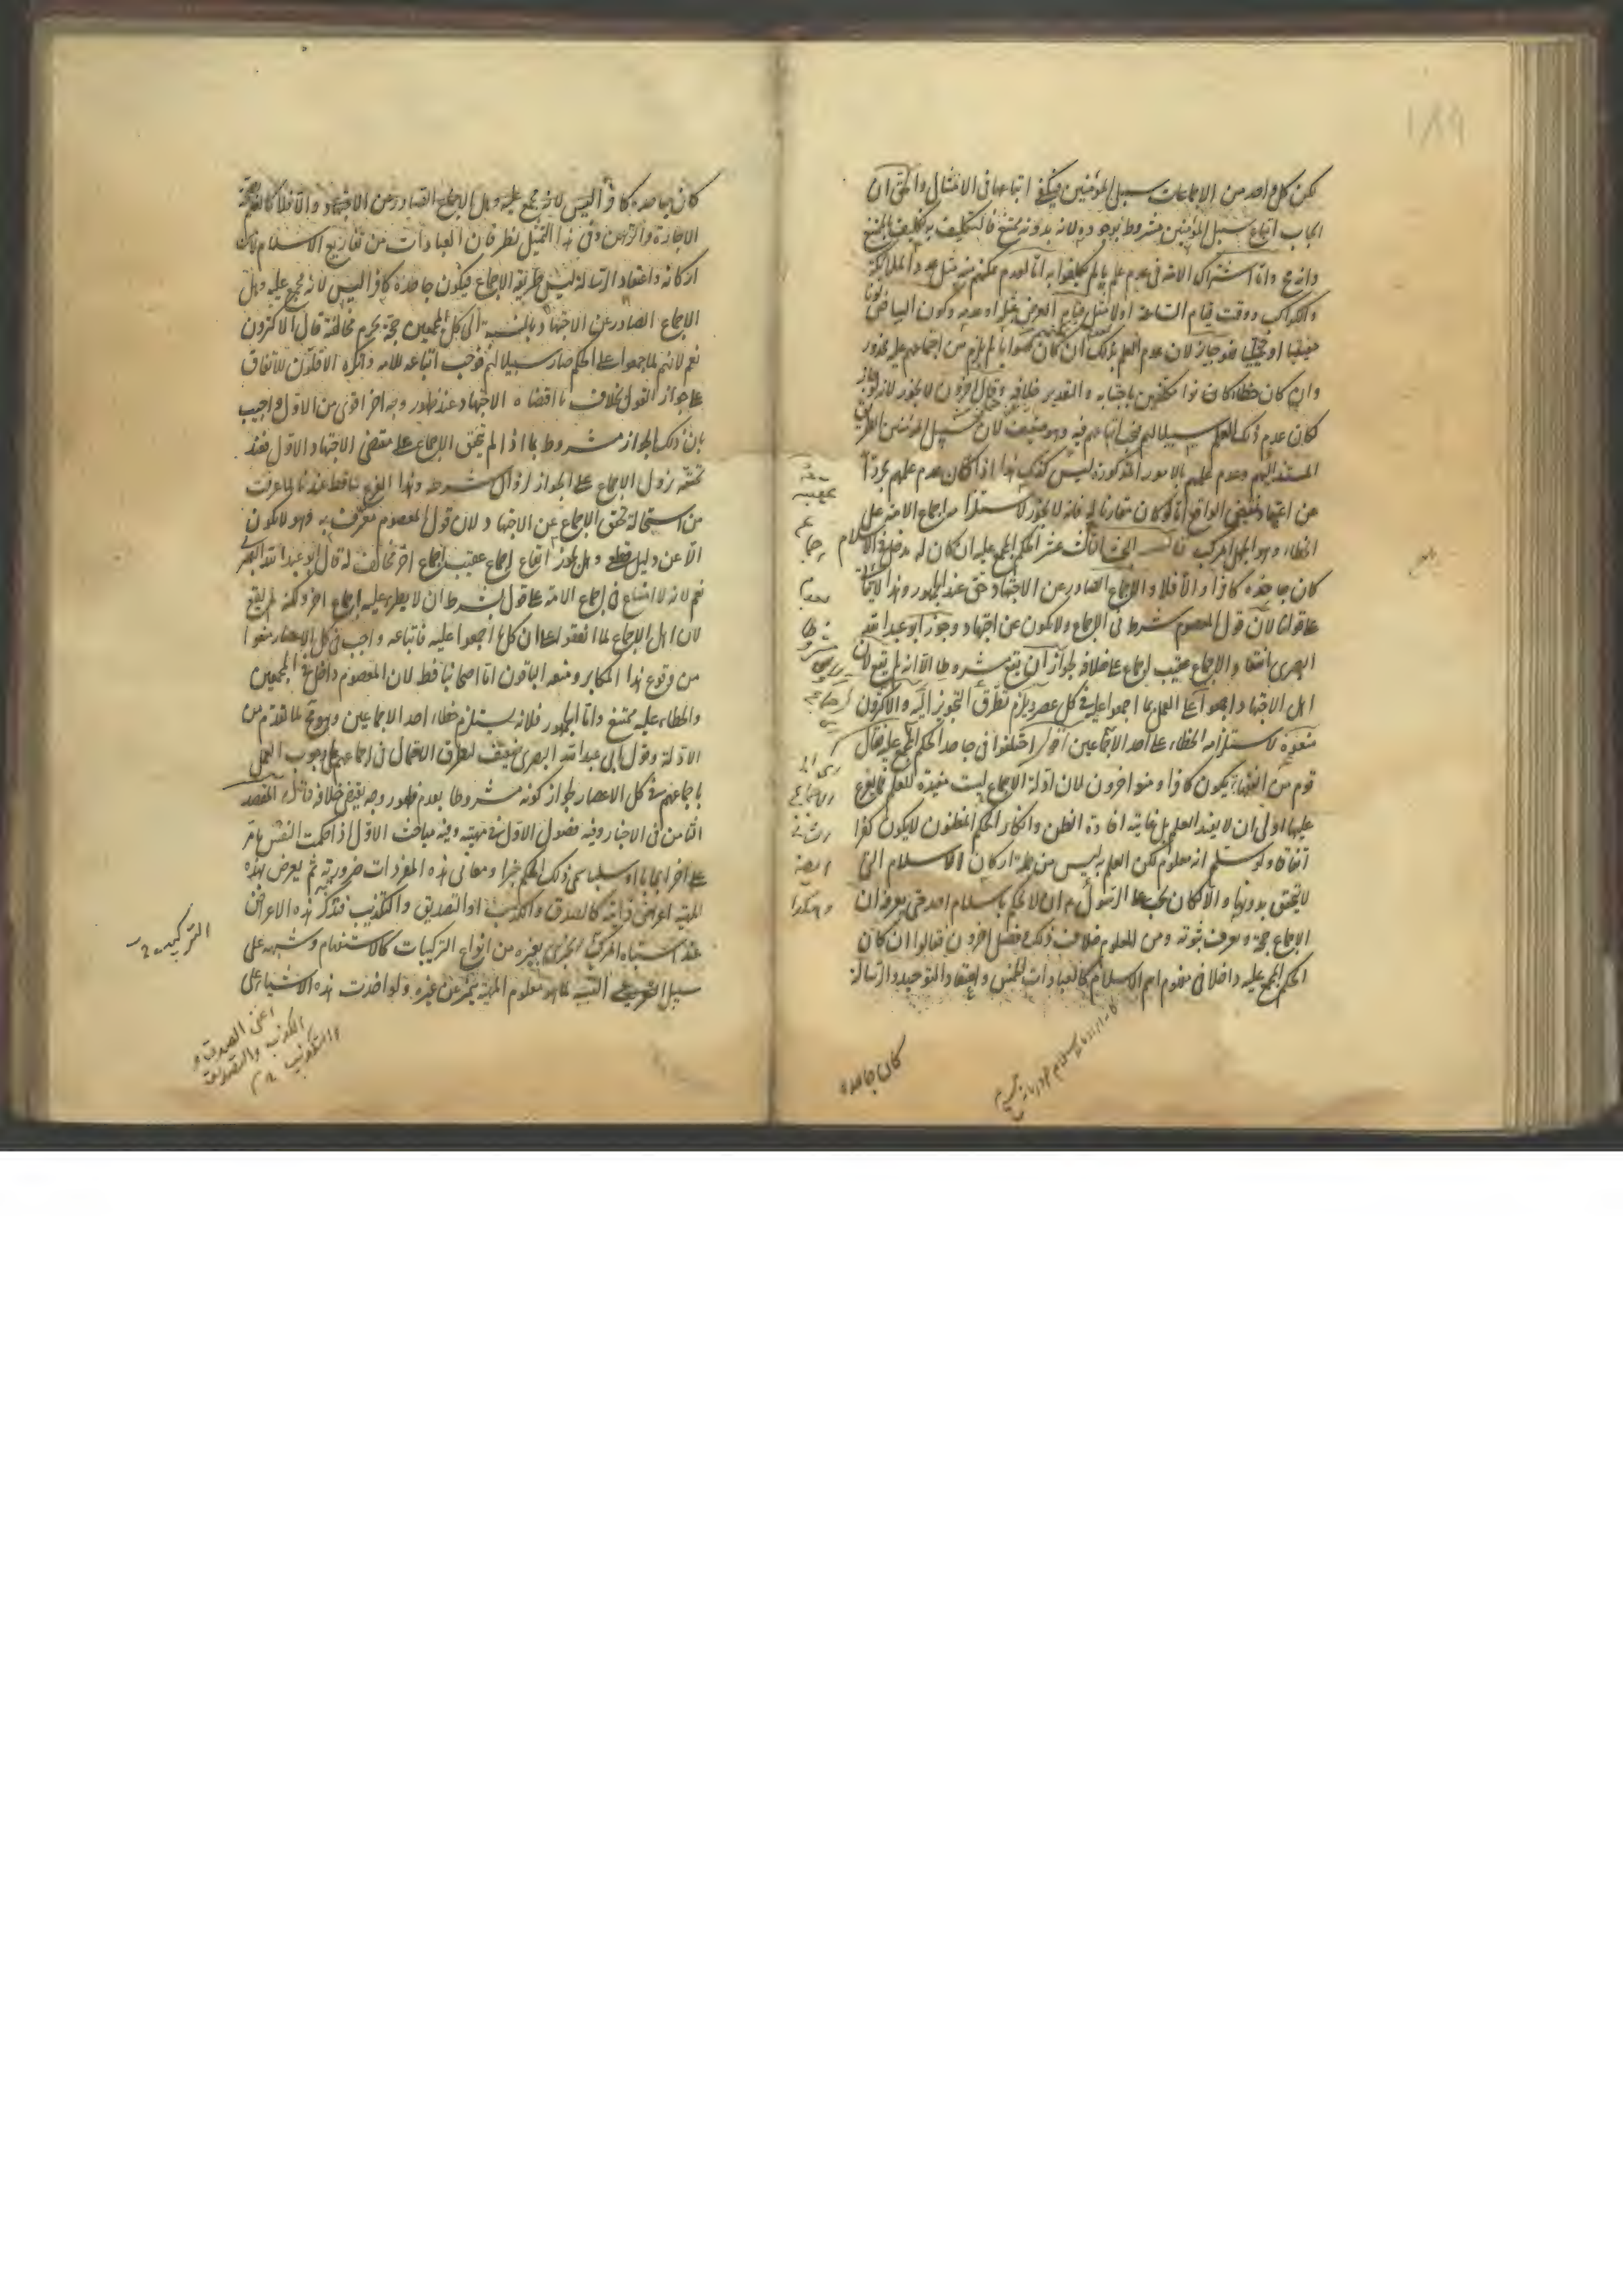 ١٨٩
لكن كل واحد من الاجماعات سبيل المؤمنين فيكفى اتباعها فى الامتثال والحق ان
ايجاب اتباع سبيل المؤمنين مشروط بوجوده لانه بدونه ممتنع فالتكليف به تكليف بالممتنع
وانه مح واما اشتراك الامة فى عدم علم ما لم يكلفوا به اما لعدم تمكنهم منه مثل عدد الملائكة
والكواكب ووقت قيام الساعة اولا مثل قيام العرض وكون البياض لونا
حقيقيا او تخييليا فهو جائز لان عدم العلم بذلك ان كان صوابا لم يلزم من اجماعهم عليه محذور
وان كان خطاء كانوا مكلفين باجتنابه والتقدير خلافه وقال اخرون لا يجوز لانه لو جاز
لكان عدم ذلك العلم سبيلا لهم فيجب اتباعهم فيه وهو ضعيف لان سبيل المؤمنين الطريق
المستند اليهم وعدم علمهم بالامور المذكورة ليس كذلك هذا اذا كان عدم علمهم مجردا
عن اعتقاد نقيض الواقع اما لو كان مقارنا له فانه لا يجوز لاستلزامه اجماع الامة على
الخطاء وهو الجهل المركب قال البحث الثالث عشر الحكم المجمع عليه ان كان له مدخل فى الاسلام
كان جاحده كافرا والا فلا والاجماع الصادر عن الاجتهاد حق عند الجمهور وهذا لا يتأتى
على قولنا لان قول المعصوم شرط فى الاجماع ولا يكون عن اجتهاد وجوز ابو عبد الله
البصرى انعقاد الاجماع عقيب اجماع على خلافه لجواز ان يقع مشروطا الا انه لم يقع لان
اهل الاجتهاد اجمعوا على العمل بما اجمعوا عليه فى كل عصر ولم تطرق التجويز اليه والاكثرون
منعوه لاستلزامه الخطاء على احد الاجماعين اقول اختلفوا فى جاحد الحكم المجمع عليه فقال
قوم من الفقهاء يكون كافرا ومنع اخرون لان ادلة الاجماع ليست مفيدة للعلم فما يفرع
عليها اولى ان لا يفيد العلم بل غايته افادة الظن وانكار الحكم المظنون لا يكون كفرا
اتفاقا ولو سلم انه معلوم لكن العلم به ليس من جملة اركان الاسلام التى
لا يتحقق بدونها والا لكان يجب على الرسول م ان لا يحكم باسلام احد حتى يعرفه ان
الاجماع حجة ويعرف ثبوته ومن المعلوم خلاف ذلك وفصل اخرون فقالوا ان كان
الحكم المجمع عليه داخلا فى مفهوم اسم الاسلام كالعبادات الخمس واعتقاد التوحيد والرسالة
كان جاحده
كان جاحده كافرا ليس لانه مجمع عليه وهل الاجماع الصادر عن الاجتهاد واما فلا كالحكم بصحة
الاجارة والرهن وفى هذا التمثيل نظر فان العبادات من تفاريع الاسلام لا من
اركانه واعتقاد الرسالة ليس طريقه الاجماع فيكون جاحده كافرا ليس لانه مجمع عليه وهل
الاجماع الصادر عن الاجتهاد بالنسبة الى كل المجمعين حجة يحرم مخالفته قال الاكثرون
نعم لانهم لما اجمعوا على الحكم صار سبيلا لهم فوجب اتباعه للاية وانكره الاقلون للاتفاق
على جواز القول بخلاف ما اقتضاه الاجتهاد عند ظهور وجه اخر اقوى من الاول واجيب
بان ذلك الجواز مشروط بما اذا لم يتحقق الاجماع على مقتضى الاجتهاد الاول فعند
تحققه زول الاجماع على الجواز لزوال شرطه وهذا الفرع ساقط عندنا لما عرفت
من استحالة تحقق الاجماع عن الاجتهاد ولان قول المعصوم معرف به فهو لا يكون
الا عن دليل قطعى وهل يجوز ايقاع اجماع عقيب اجماع اخر مخالف له قال ابو عبد الله البصرى
نعم لانه لا امتناع فى اجماع الامة على قول بشرط ان لا يطرء عليه اجماع اخر ولكنه لم يقع
لان اهل الاجماع لما اتفقوا على ان كل ما اجمعوا عليه فاتباعه واجب فى كل الاعصار منعوا
من وقوع هذا المكابر ومنعه الباقون اما اصحابنا فقط لان المعصوم داخل فى المجمعين
والخطاء عليه ممتنع واما الجمهور فلانه يستلزم خطاء احد الاجماعين وهو مح لما تقدم من
الادلة وقول ابى عبد الله البصرى ضعيف لتطرق الاحتمال فى اجماعهم على وجوب العمل
باجماعهم فى كل الاعصار لجواز كونه مشروطا بعدم ظهور وجه يقتضى خلافه قال المقصد
الثامن فى الاخبار وفيه فصول الاول فى مهيته وفيه مباحث الاول اذا حكمت النفس بامر
على اخر ايجابا او سلبا سمى ذلك الحكم خبرا ومعانى هذه المفردات ضرورية ثم يعرض لهذه
المهية اعراض ذاتية كالصدق والكذب او التصديق والتكذيب فتذكر هذه الاعراض
عند اشتباه المركب الخبرى بغيره من انواع التركيبات كالاستفهام وشبهه على
سبيل التنبيه لما هو معلوم المهية ليتميز عن غيره ولو اخذت هذه الاشياء على
التركيب
اعنى الصدق و
الكذب والتصديق
والتكذيب